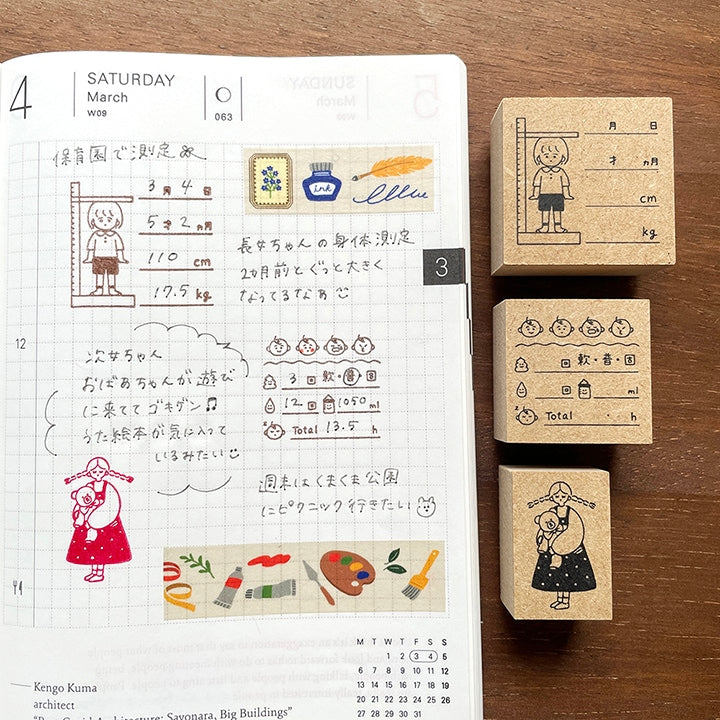 4
SATURDAY
March
W09
063
保育園で測定
3月 4日
5才 2ヵ月
110 cm
17.5 kg
ink
長女ちゃんの身体測定
2ヵ月前とぐっと大きく
なってるなあ
3
12
次女ちゃん
おばあちゃんが遊び
に来ててゴキゲン♫
うた絵本が気に入って
いるみたい
3回 軟・普・固
12回 1050ml
Total 13.5 h
週末はくまくま公園
にピクニック行きたい
M T W T F S S
1 2 3 4 5
6 7 8 9 10 11 12
13 14 15 16 17 18 19
20 21 22 23 24 25 26
27 28 29 30 31
Kengo Kuma
architect
Sayonara, Big Buildings”
月 日
才 ヵ月
cm
kg
回 軟・普・固
回 ml
Total h